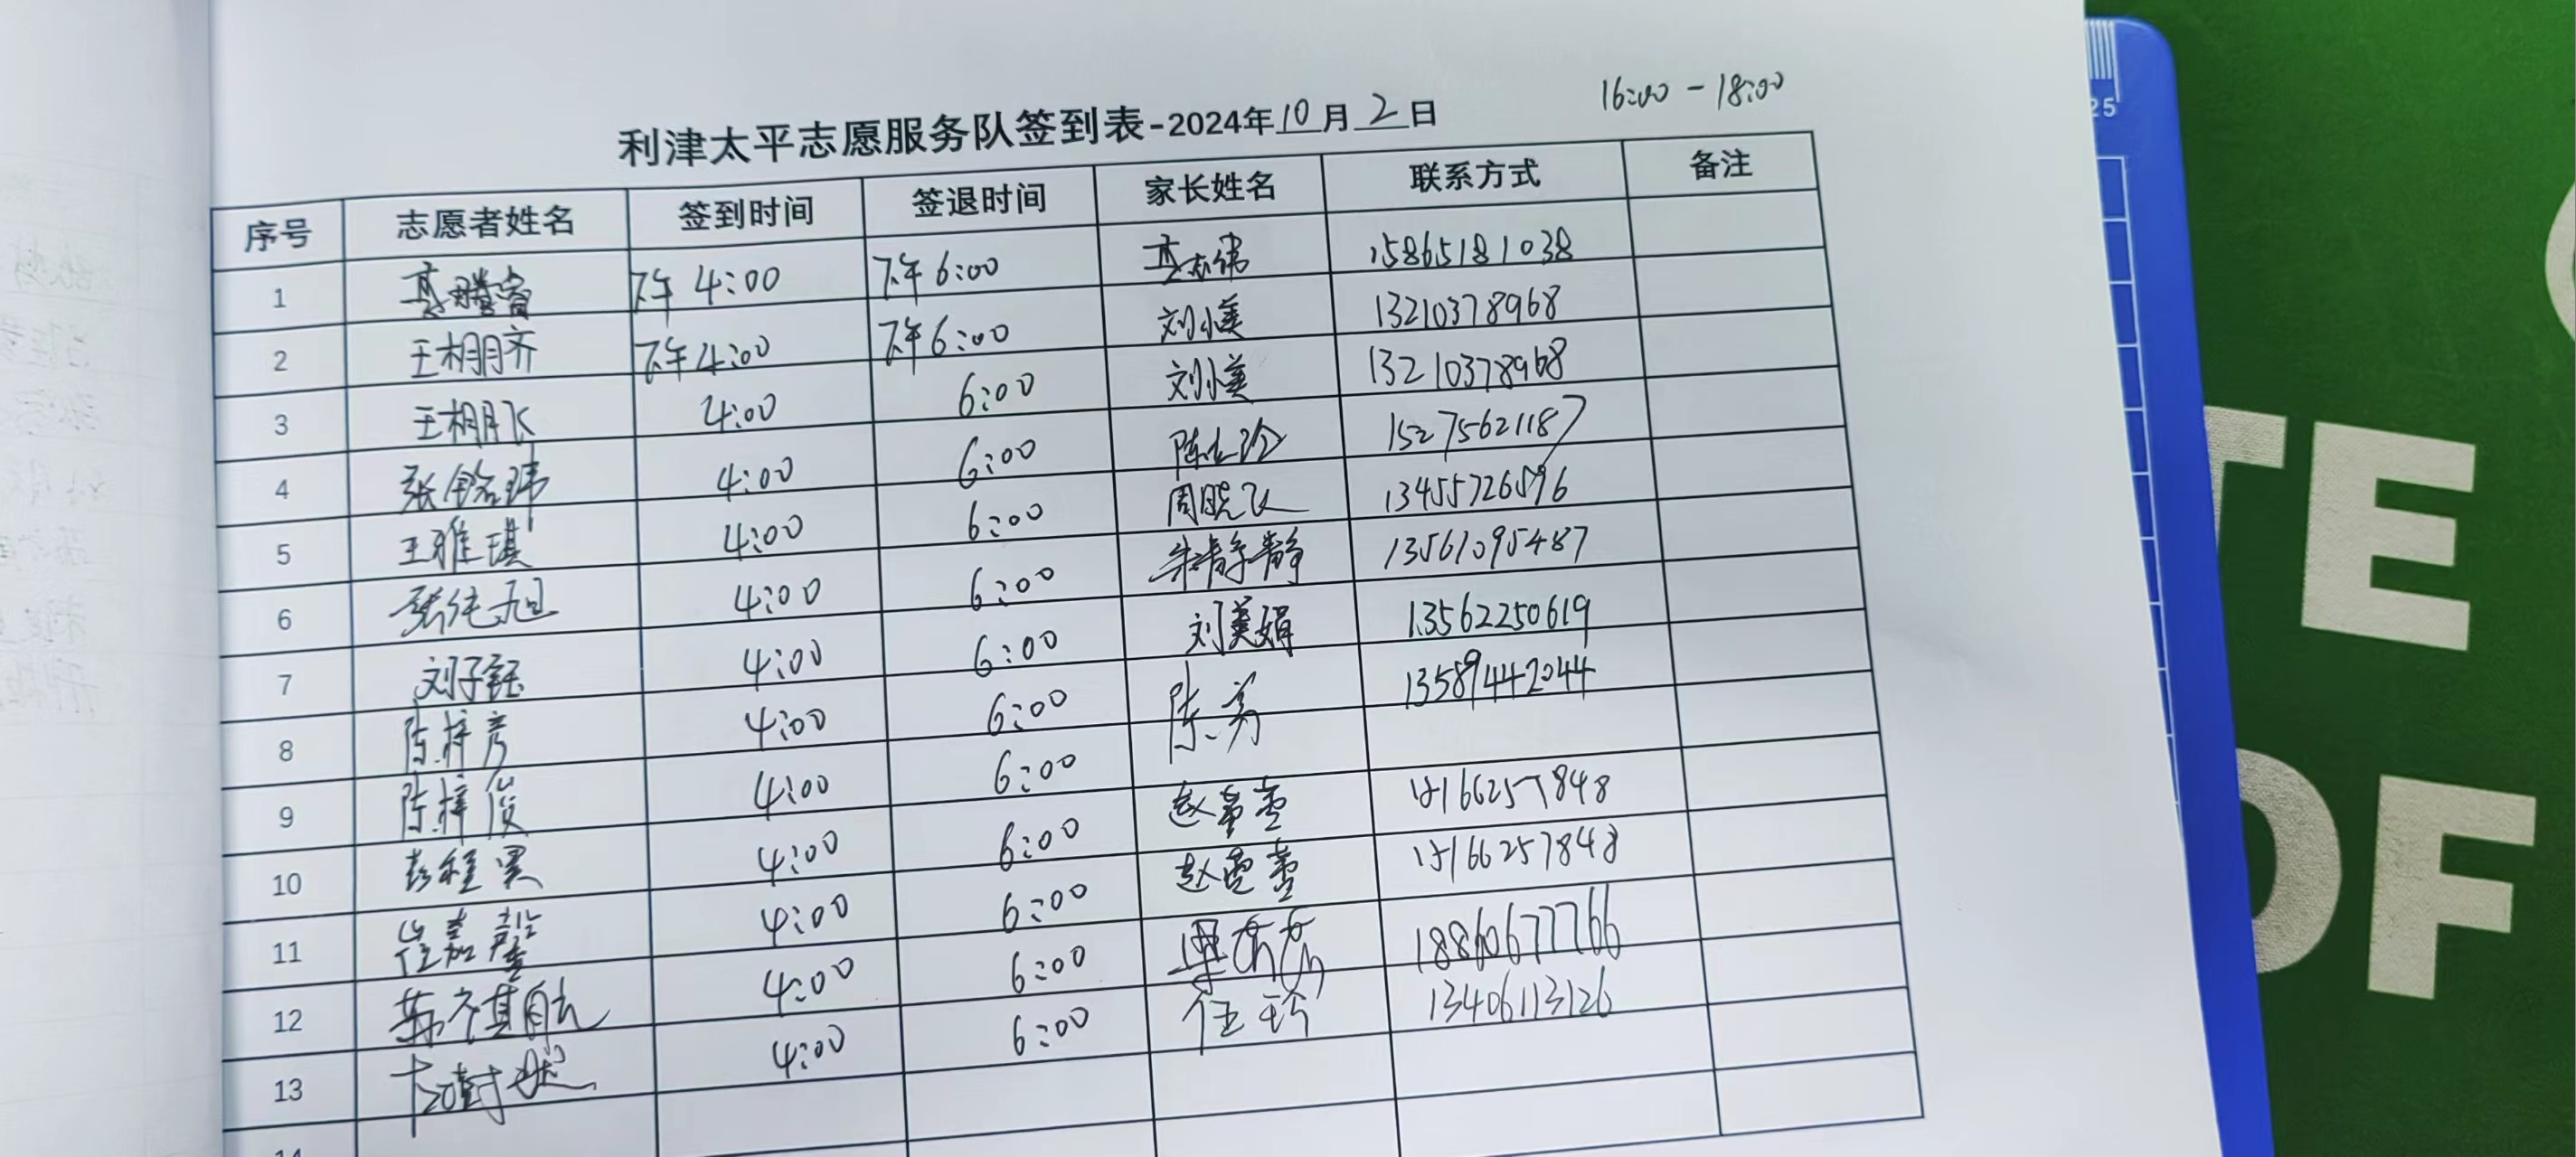 16:00-18:00
利津太平志愿服务队签到表-2024年10月2日
序号 志愿者姓名 签到时间 签退时间 家长姓名 联系方式 备注
1 下午 4:00 下午 6:00 15865181038
2 王棚齐 下午 4:00 下午 6:00 刘小美 13210378968
3 王棚飞 4:00 6:00 刘小美 13210378968
4 张铭玮 4:00 6:00 15275621187
5 王雅琪 4:00 6:00 周晓飞 13455726596
6 张纯旭 4:00 6:00 朱静静 13561095487
7 刘子钰 4:00 6:00 刘美娟 13562250619
8 陈梓彦 4:00 6:00 陈芳 13589442044
9 陈梓俊 4:00 6:00
10 彭程果 4:00 6:00 15166257848
11 崔嘉馨 4:00 6:00 15166257848
12 4:00 6:00 18860677766
13 4:00 6:00 任玲 13406113126
14
25
TE
OF